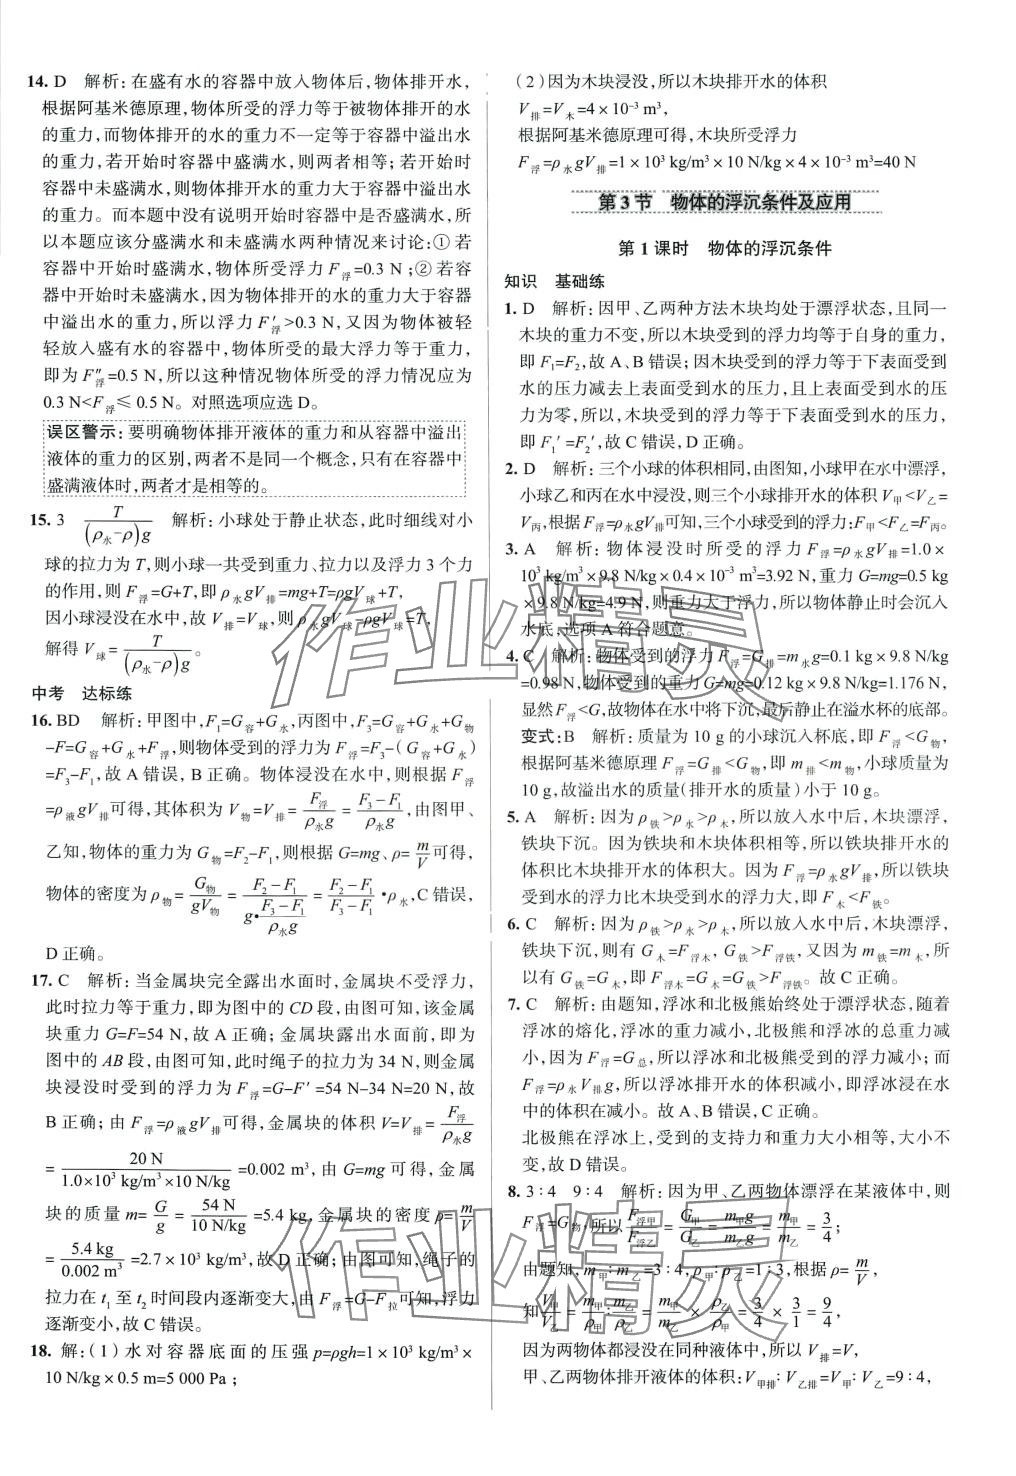 14. D 解析:在盛有水的容器中放入物体后,物体排开水,
根据阿基米德原理,物体所受的浮力等于被物体排开的水
的重力,而物体排开的水的重力不一定等于容器中溢出水
的重力,若开始时容器中盛满水,则两者相等;若开始时
容器中未盛满水,则物体排开水的重力大于容器中溢出水
的重力。而本题中没有说明开始时容器中是否盛满水,所
以本题应该分盛满水和未盛满水两种情况来讨论:①若
容器中开始时盛满水,物体所受浮力 F浮=0.3 N;②若容
器中开始时未盛满水,因为物体排开的水的重力大于容器
中溢出水的重力,所以浮力 F′浮>0.3 N,又因为物体被轻
轻放入盛有水的容器中,物体所受的最大浮力等于重力,
即为 F″浮=0.5 N,所以这种情况物体所受的浮力情况应为
0.3 N<F浮≤0.5 N。对照选项应选 D。
误区警示:要明确物体排开液体的重力和从容器中溢出
液体的重力的区别,两者不是同一个概念,只有在容器中
盛满液体时,两者才是相等的。
15. 3 T/((ρ水-ρ)g) 解析:小球处于静止状态,此时细线对小
球的拉力为 T,则小球一共受到重力、拉力以及浮力 3 个力
的作用,则 F浮=G+T,即 ρ水gV排=mg+T=ρgV球+T,
因小球浸没在水中,故 V排=V球,则 ρ水gV球-ρgV球=T,
解得 V球=T/((ρ水-ρ)g)。
中考 达标练
16. BD 解析:甲图中,F1=G容+G水,丙图中,F3=G容+G水+G物
-F=G容+G水+F浮,则物体受到的浮力为 F浮=F3-(G容+G水)
=F3-F1,故 A 错误,B 正确。物体浸没在水中,则根据 F浮
=ρ液gV排可得,其体积为 V物=V排=F浮/(ρ水g)=(F3-F1)/(ρ水g),由图甲、
乙知,物体的重力为 G物=F2-F1,则根据 G=mg、ρ=m/V可得,
物体的密度为 ρ物=G物/(gV物)=(F2-F1)/(g•(F3-F1)/(ρ水g))=(F2-F1)/(F3-F1)•ρ水,C 错误,
D 正确。
17. C 解析:当金属块完全露出水面时,金属块不受浮力,
此时拉力等于重力,即为图中的 CD 段,由图可知,该金属
块重力 G=F=54 N,故 A 正确;金属块露出水面前,即为
图中的 AB 段,由图可知,此时绳子的拉力为 34 N,则金属
块浸没时受到的浮力为 F浮=G-F′=54 N-34 N=20 N,故
B 正确;由 F浮=ρ液gV排可得,金属块的体积 V=V排=F浮/(ρ水g)
=20 N/(1.0×10³ kg/m³×10 N/kg)=0.002 m³,由 G=mg 可得,金属
块的质量 m=G/g=54 N/(10 N/kg)=5.4 kg,金属块的密度 ρ=m/V
=5.4 kg/(0.002 m³)=2.7×10³ kg/m³,故 D 正确;由图可知,绳子的
拉力在 t1 至 t2 时间段内逐渐变大,由 F浮=G-F拉可知,浮力
逐渐变小,故 C 错误。
18. 解:(1)水对容器底面的压强 p=ρgh=1×10³ kg/m³×
10 N/kg×0.5 m=5 000 Pa;
(2)因为木块浸没,所以木块排开水的体积
V排=V木=4×10⁻³ m³,
根据阿基米德原理可得,木块所受浮力
F浮=ρ水gV排=1×10³ kg/m³×10 N/kg×4×10⁻³ m³=40 N
第 3 节 物体的浮沉条件及应用
第 1 课时 物体的浮沉条件
知识 基础练
1. D 解析:因甲、乙两种方法木块均处于漂浮状态,且同一
木块的重力不变,所以木块受到的浮力均等于自身的重力,
即 F1=F2,故 A、B 错误;因木块受到的浮力等于下表面受到
水的压力减去上表面受到水的压力,且上表面受到水的压
力为零,所以,木块受到的浮力等于下表面受到水的压力,
即 F1′=F2′,故 C 错误,D 正确。
2. D 解析:三个小球的体积相同,由图知,小球甲在水中漂浮,
小球乙和丙在水中浸没,则三个小球排开水的体积 V甲<V乙=
V丙,根据 F浮=ρ水gV排可知,三个小球受到的浮力:F甲<F乙=F丙。
3. A 解析:物体浸没时所受的浮力 F浮=ρ水gV排=1.0×
10³ kg/m³×9.8 N/kg×0.4×10⁻³ m³=3.92 N,重力 G=mg=0.5 kg
×9.8 N/kg=4.9 N,则重力大于浮力,所以物体静止时会沉入
水底,选项 A 符合题意。
4. C 解析:物体受到的浮力 F浮=G排=m水g=0.1 kg×9.8 N/kg
=0.98 N,物体受到的重力 G=mg=0.12 kg×9.8 N/kg=1.176 N,
显然 F浮<G,故物体在水中将下沉,最后静止在溢水杯的底部。
变式:B 解析:质量为 10 g 的小球沉入杯底,即 F浮<G物,
根据阿基米德原理 F浮=G排<G物,即 m排<m物,小球质量为
10 g,故溢出水的质量(排开水的质量)小于 10 g。
5. A 解析:因为 ρ铁>ρ水>ρ木,所以放入水中后,木块漂浮,
铁块下沉。因为铁块和木块体积相等,所以铁块排开水的
体积比木块排开水的体积大。因为 F浮=ρ水gV排,所以铁块
受到水的浮力比木块受到水的浮力大,即 F木<F铁。
6. C 解析:因为 ρ铁>ρ水>ρ木,所以放入水中后,木块漂浮,
铁块下沉,则有 G木=F浮木,G铁>F浮铁,又因为 m铁=m木,所
以有 G铁=G木,即 F浮木=G木=G铁>F浮铁。故 C 正确。
7. C 解析:由题知,浮冰和北极熊始终处于漂浮状态,随着
浮冰的熔化,浮冰的重力减小,北极熊和浮冰的总重力减
小,因为 F浮=G总,所以浮冰和北极熊受到的浮力减小;而
F浮=ρ水V排g,所以浮冰排开水的体积减小,即浮冰浸在水
中的体积在减小。故 A、B 错误,C 正确。
北极熊在浮冰上,受到的支持力和重力大小相等,大小不
变,故 D 错误。
8. 3∶4 9∶4 解析:因为甲、乙两物体漂浮在某液体中,则
F浮=G物,所以F浮甲/F浮乙=G甲/G乙=m甲g/m乙g=m甲/m乙=3/4;
由题知,m甲∶m乙=3∶4,ρ甲∶ρ乙=1∶3,根据 ρ=m/V,
知V甲/V乙=m甲/ρ甲∶m乙/ρ乙=m甲/m乙×ρ乙/ρ甲=3/4×3/1=9/4,
因为两物体都浸没在同种液体中,所以 V排=V,
甲、乙两物体排开液体的体积:V甲排∶V乙排=V甲∶V乙=9∶4,
作业精灵
作业精灵